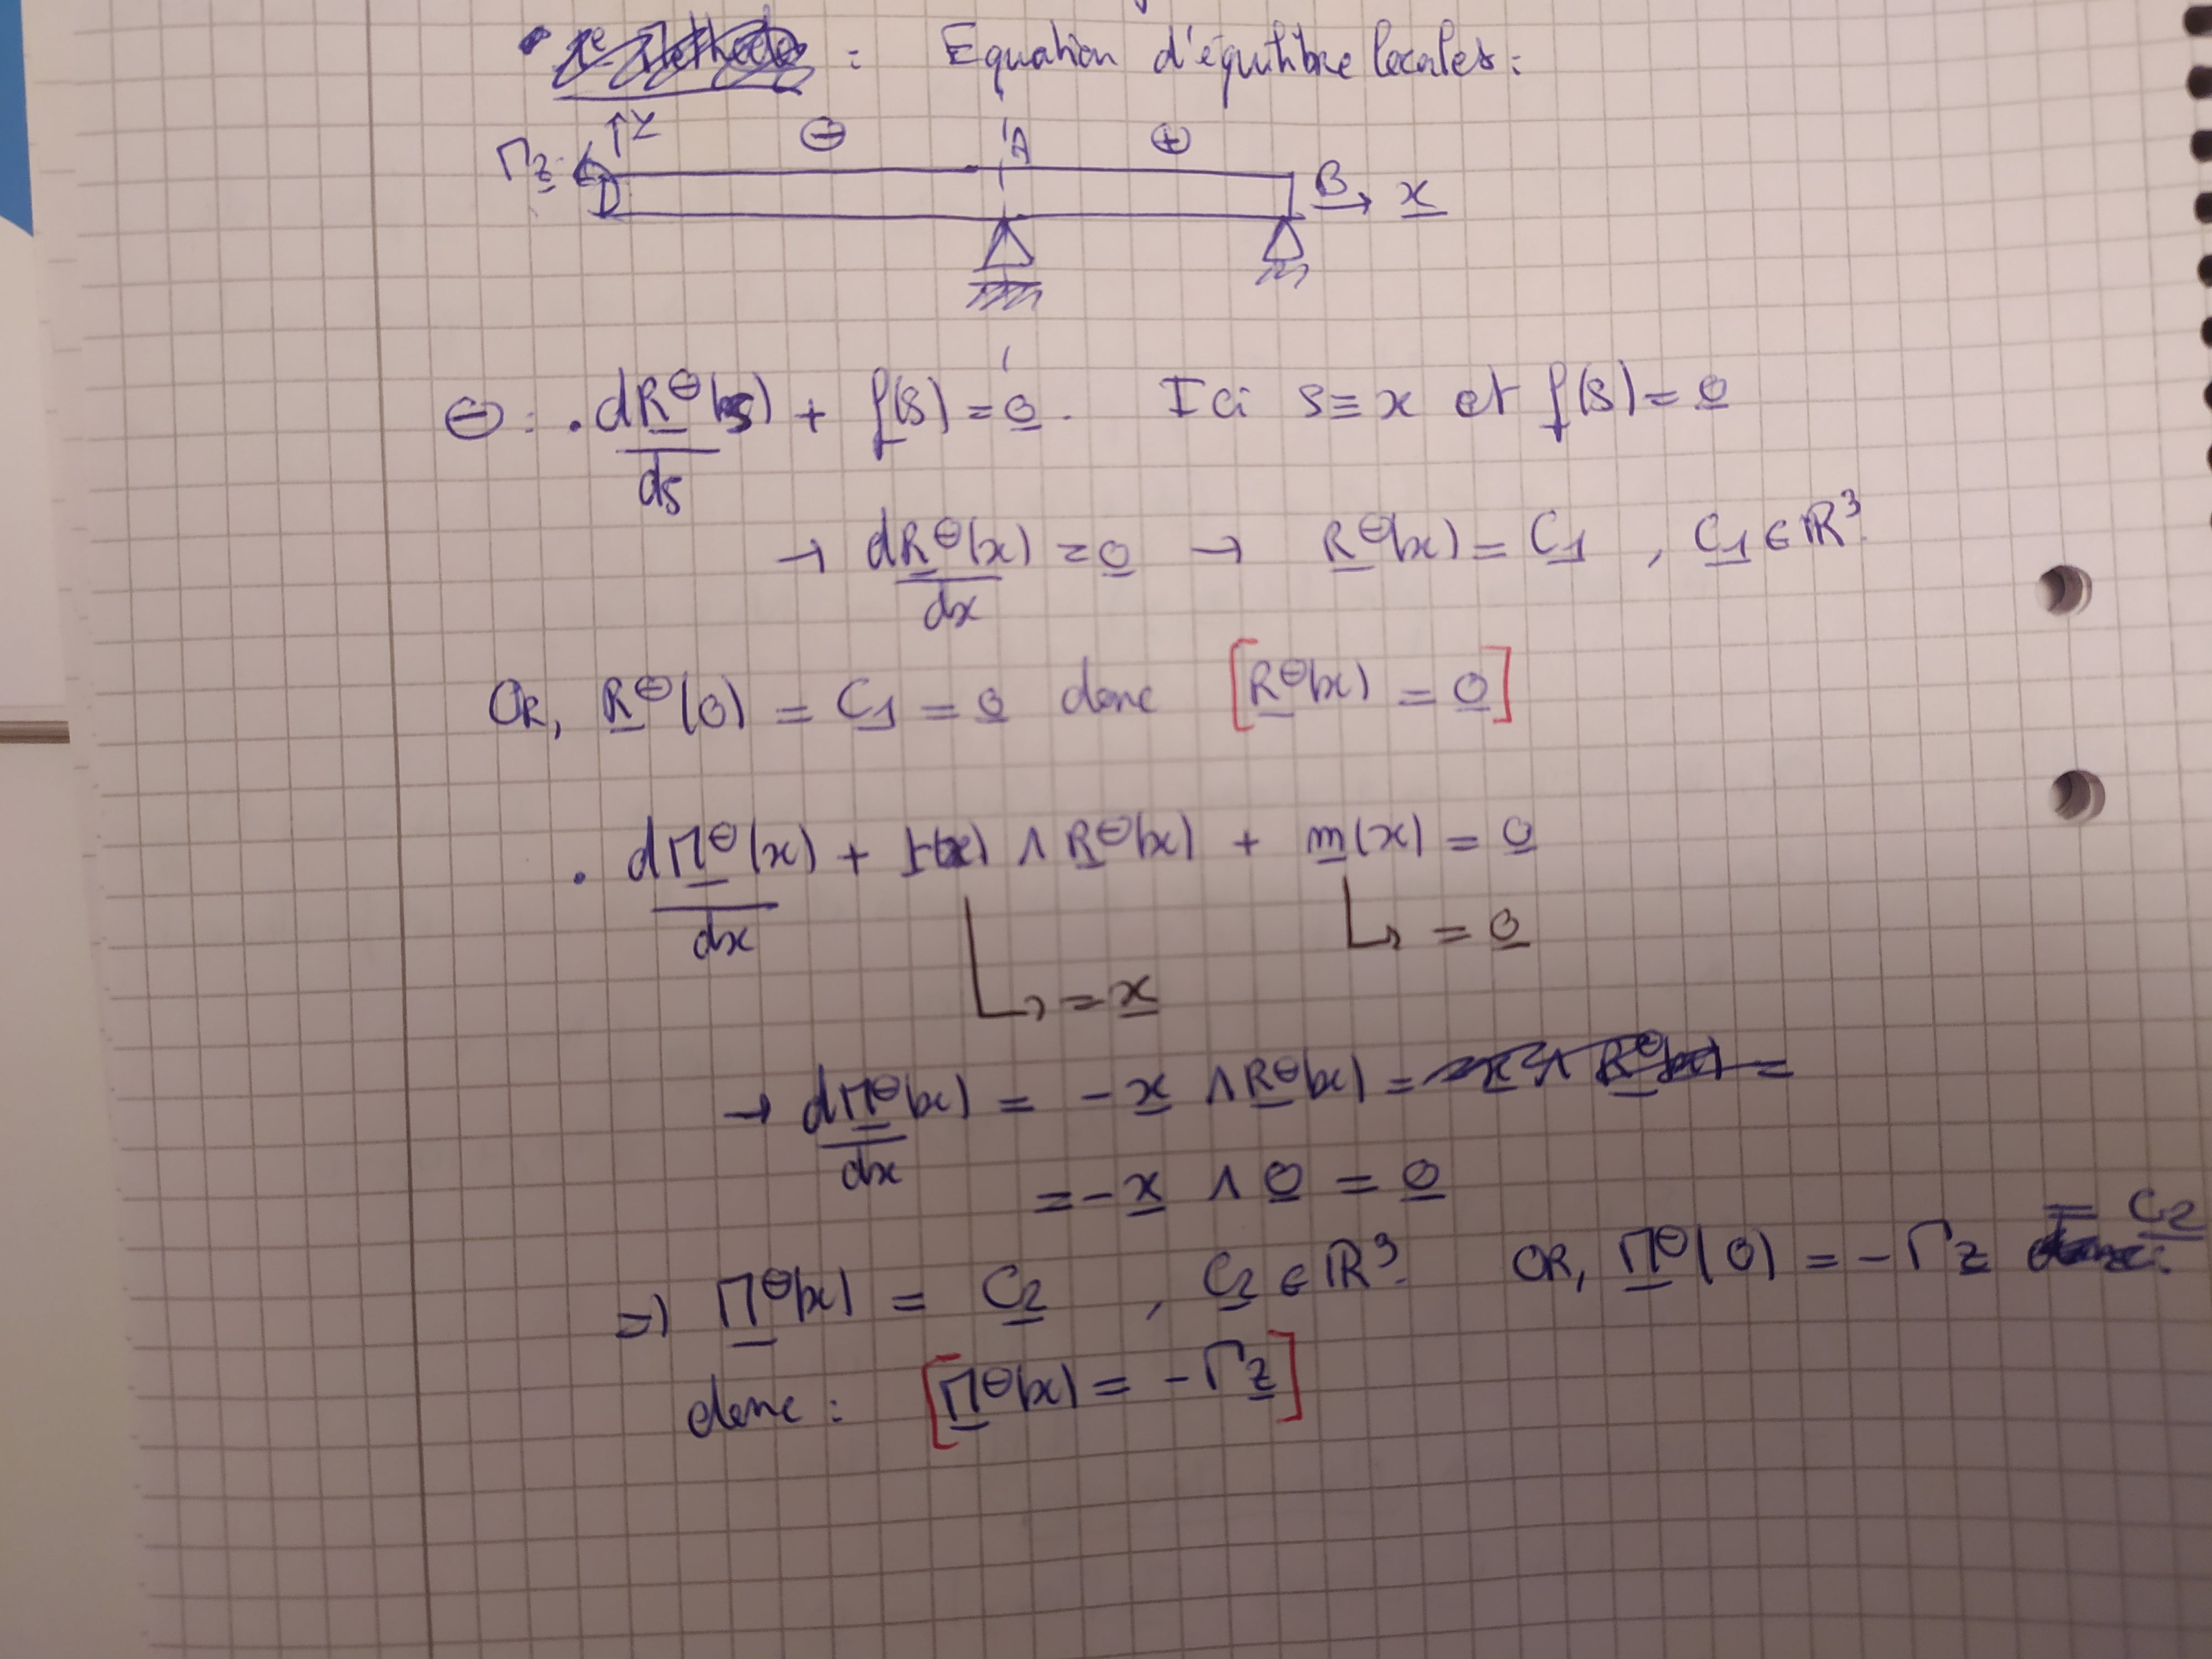 : Equation d'équilibre locales :
Γz ↑Y ⊖ A ⊕ B → x
⊖ : . dR⊖(s)/ds + f(s) = 0. Ici s ≡ x et f(s) = 0
→ dR⊖(x)/dx = 0 → R⊖(x) = C1 , C1 ∈ ℝ³.
OR, R⊖(0) = C1 = 0 donc [R⊖(x) = 0]
. dM⊖(x)/dx + t(x) ∧ R⊖(x) + m(x) = 0
↳ = 0
↳ = x
→ dM⊖(x)/dx = - x ∧ R⊖(x) =
= - x ∧ 0 = 0
=> M⊖(x) = C2 , C2 ∈ ℝ³. OR, M⊖(0) = - Γz = C2
donc : [M⊖(x) = - Γz]